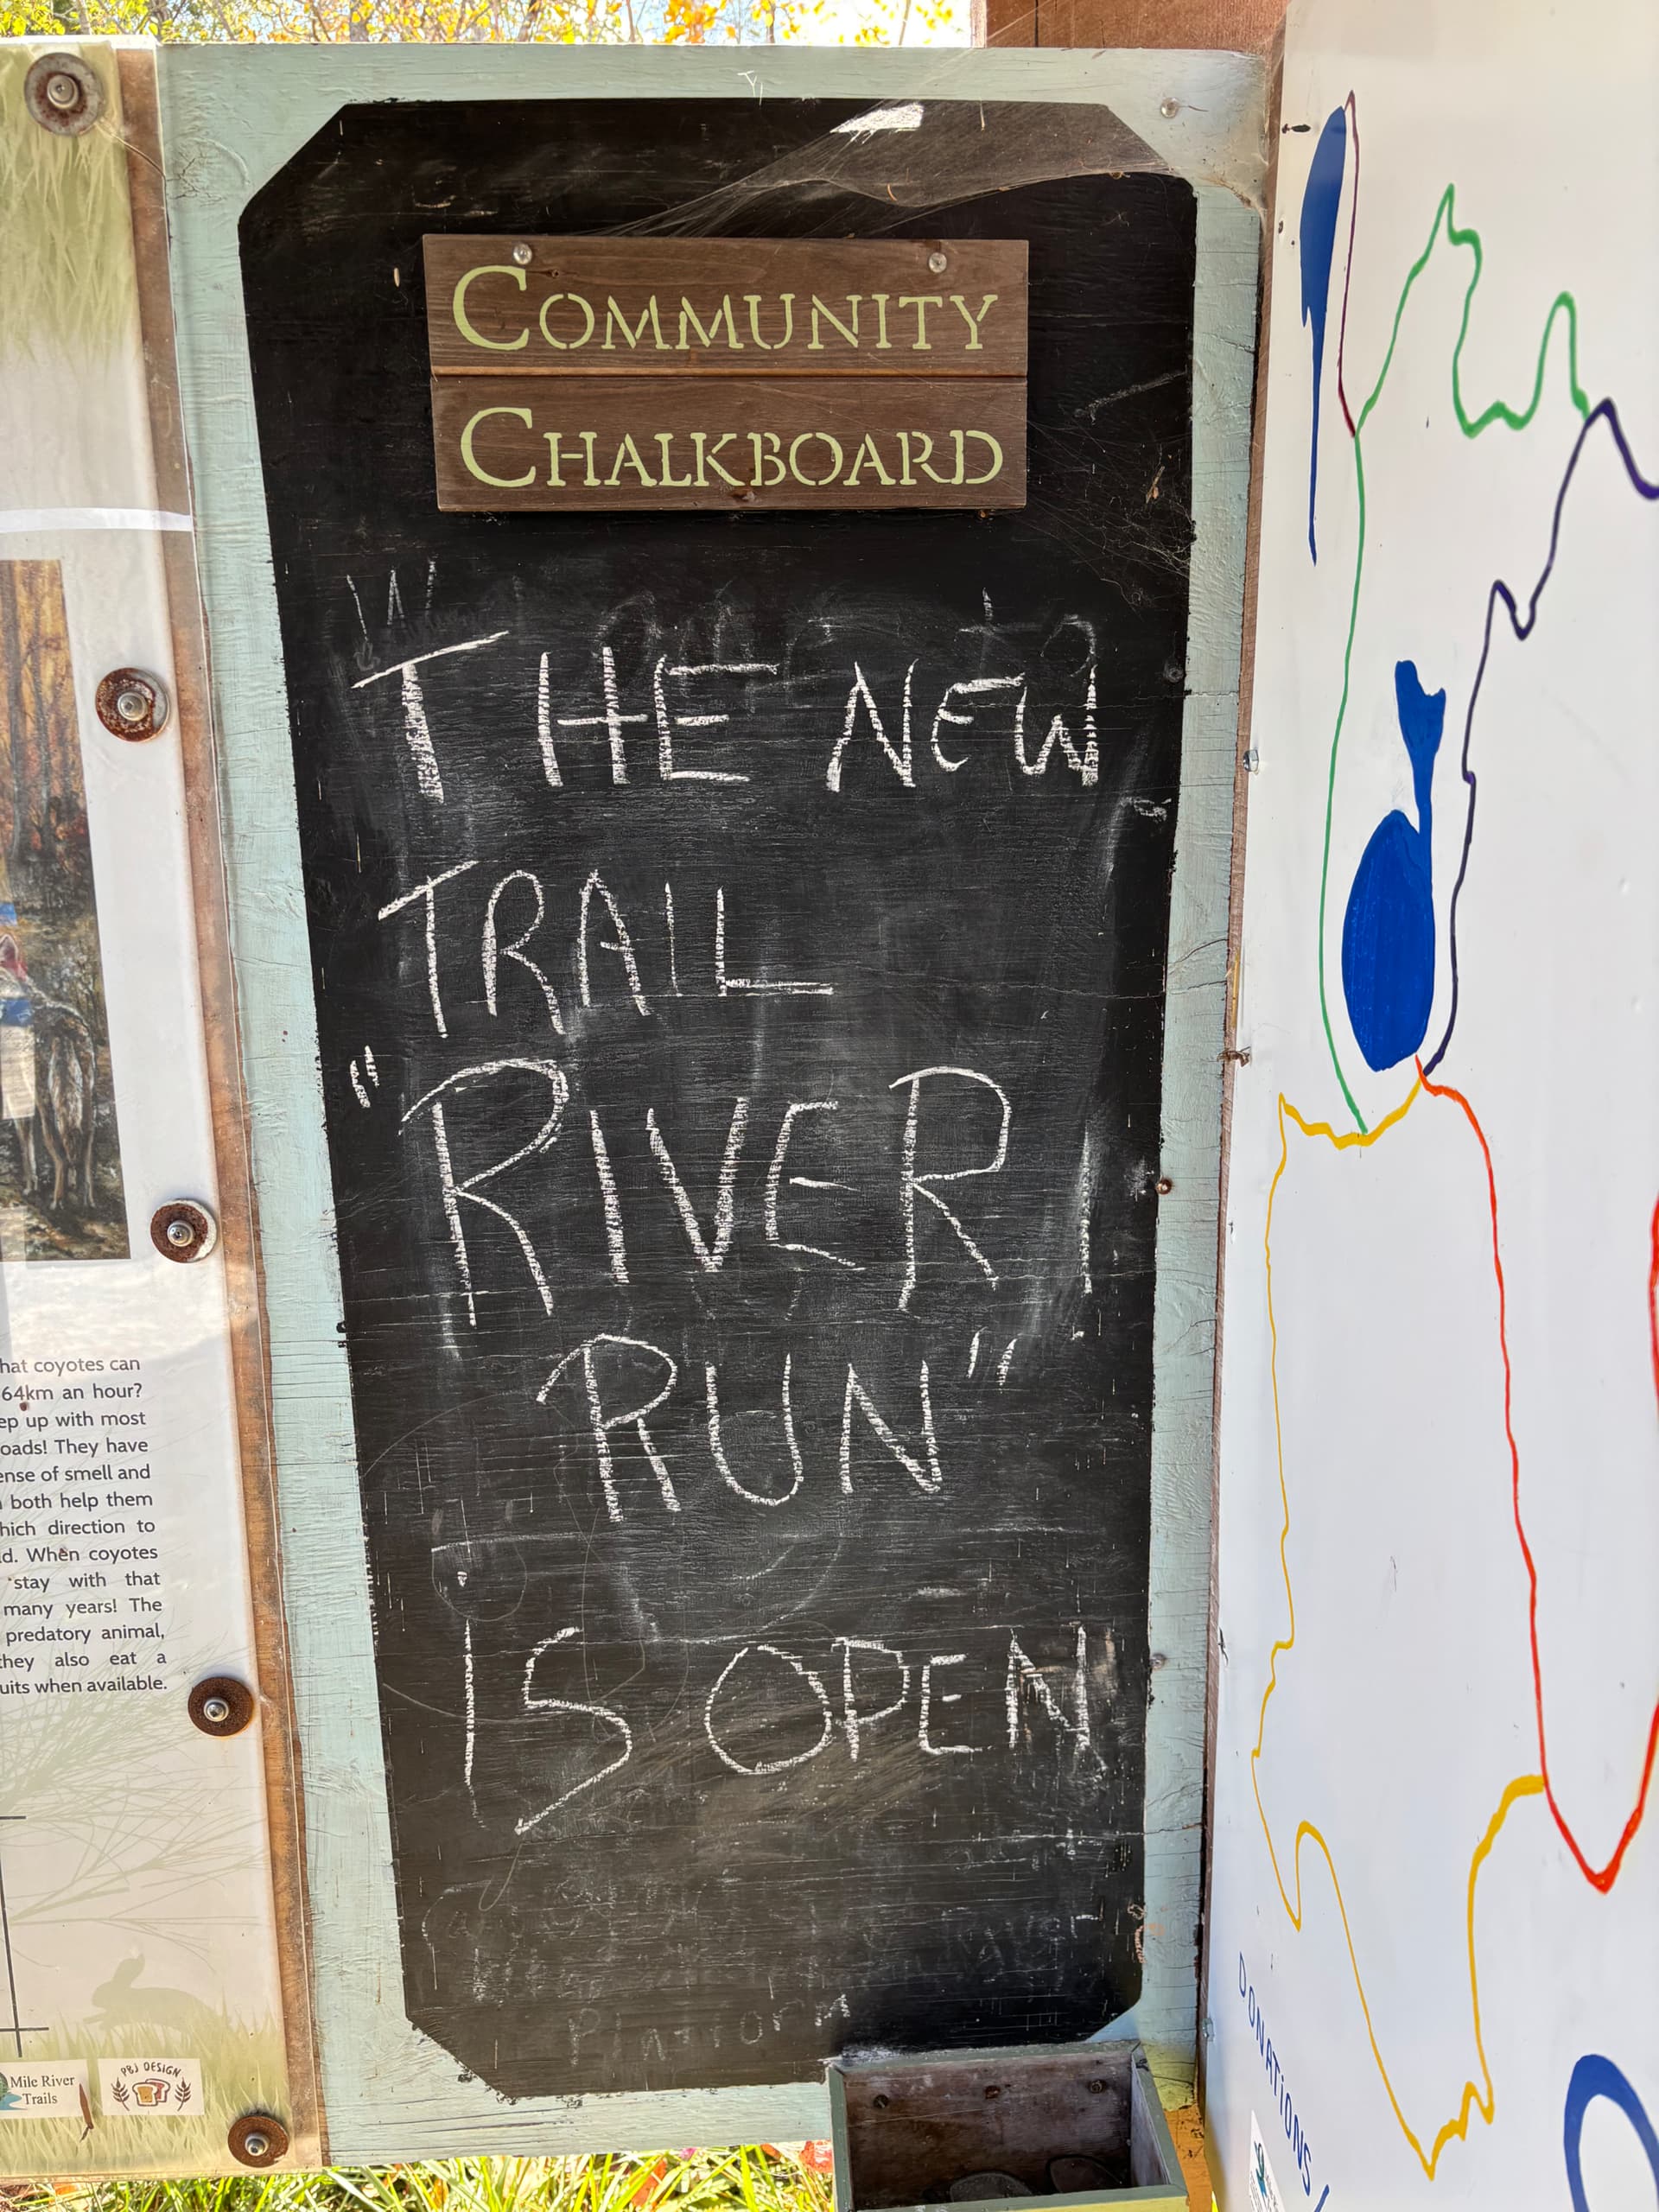 COMMUNITY
CHALKBOARD
THE NEW
TRAIL
"RIVER
RUN"
IS OPEN
Platform
hat coyotes can
64km an hour?
ep up with most
oads! They have
ense of smell and
both help them
hich direction to
d. When coyotes
stay with that
many years! The
predatory animal,
they also eat a
uits when available.
Mile River
Trails
PBJ DESIGN
DONATIONS